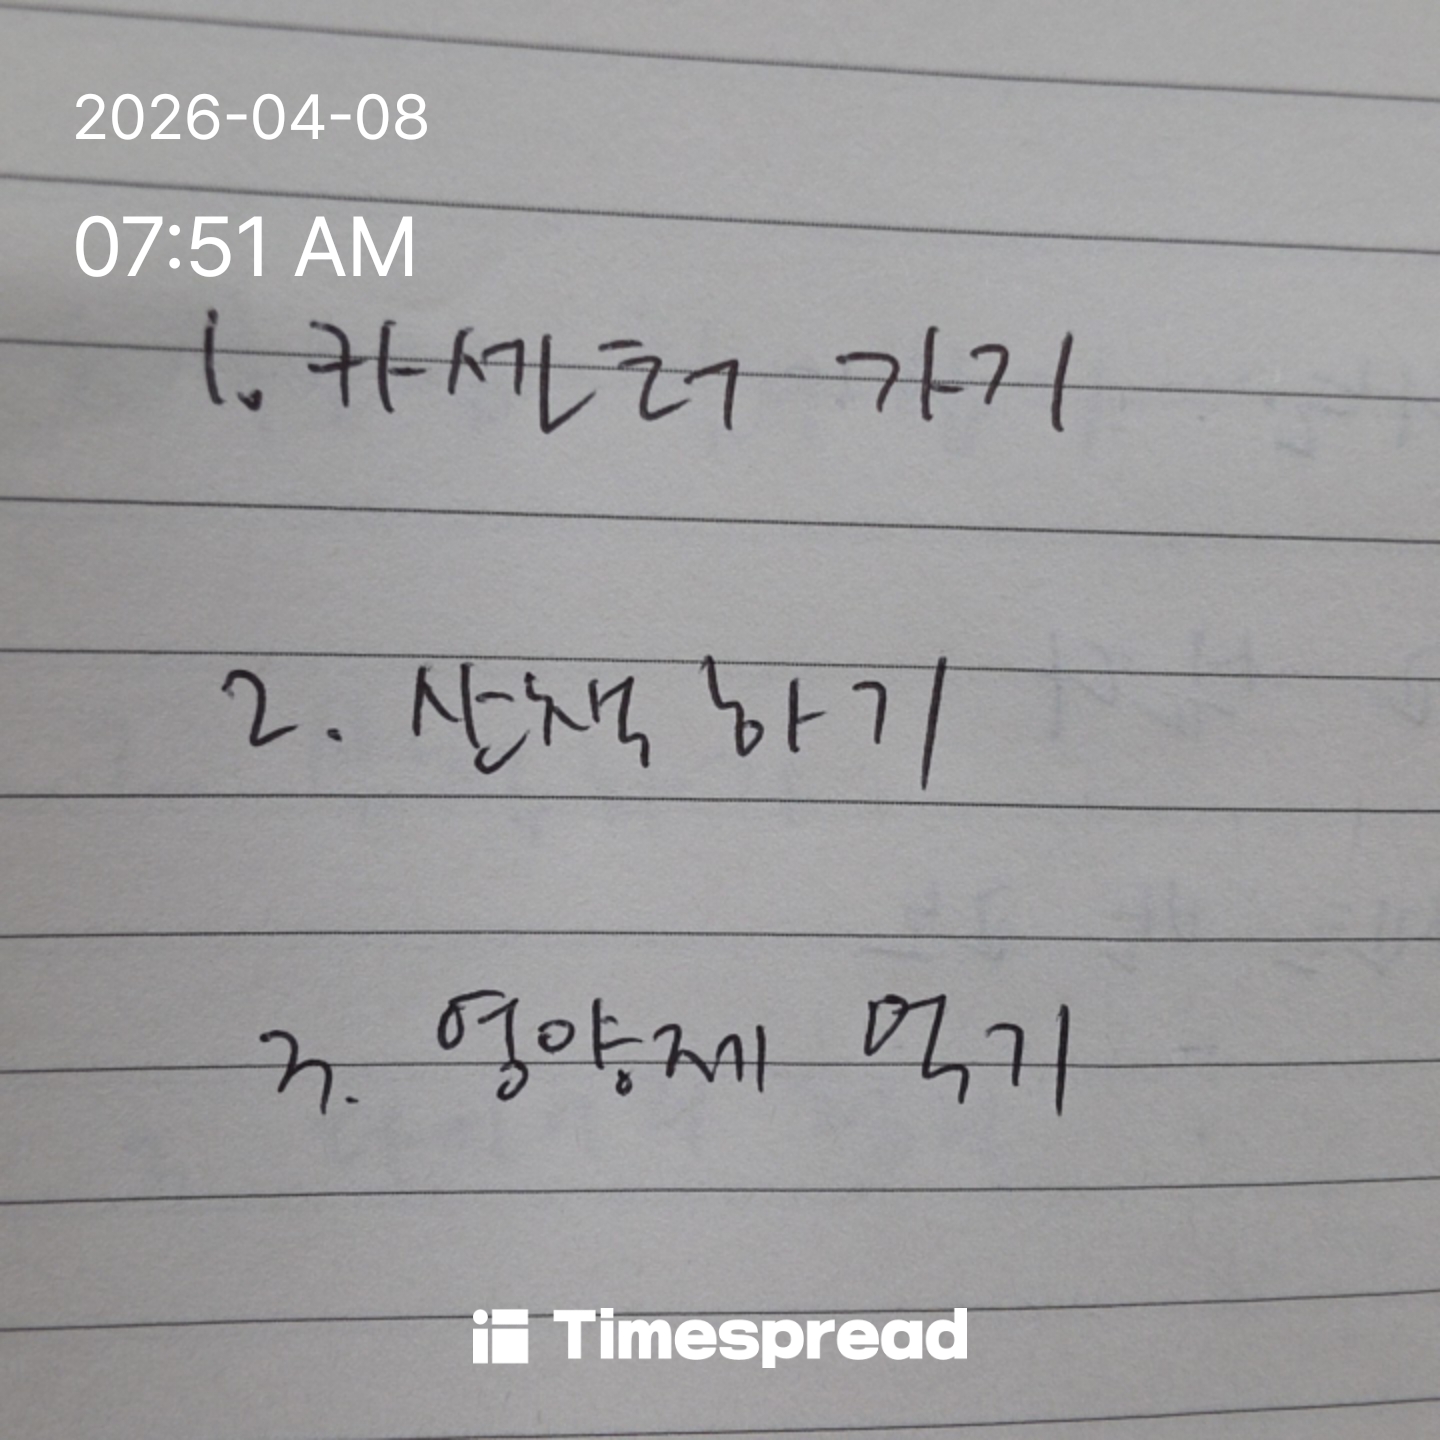 2026-04-08
07:51 AM
1. 카센터 가기
2. 산책하기
3. 영양제 먹기
Timespread